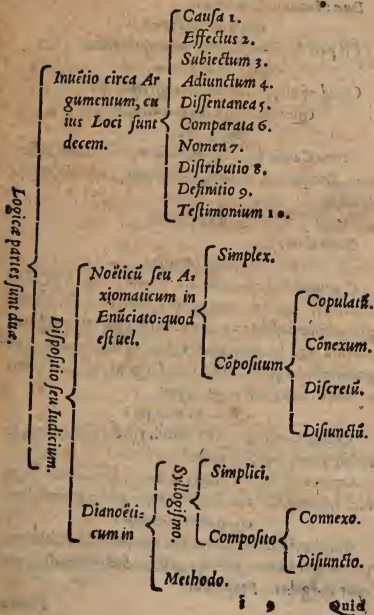 Logicæ partes sunt duæ.
Inuẽtio circa Ar
gumentum, cu
ius Loci sunt
decem.
Cauſa 1.
Effectus 2.
Subiectum 3.
Adiunctum 4.
Diſſentanea 5.
Comparata 6.
Nomen 7.
Diſtributio 8.
Definitio 9.
Teſtimonium 10.
Diſpoſitio ſeu Iudicium.
Noëticũ ſeu A-
xiomaticum in
Enũciato: quod
eſt uel.
Simplex.
Cõpoſitum
Copulatũ.
Cõnexum.
Diſcretũ.
Diſiunctũ.
Dianoëti-
cum in
Syllogiſmo.
Simplici.
Compoſito
Connexo.
Diſiuncto.
Methodo.
Quid